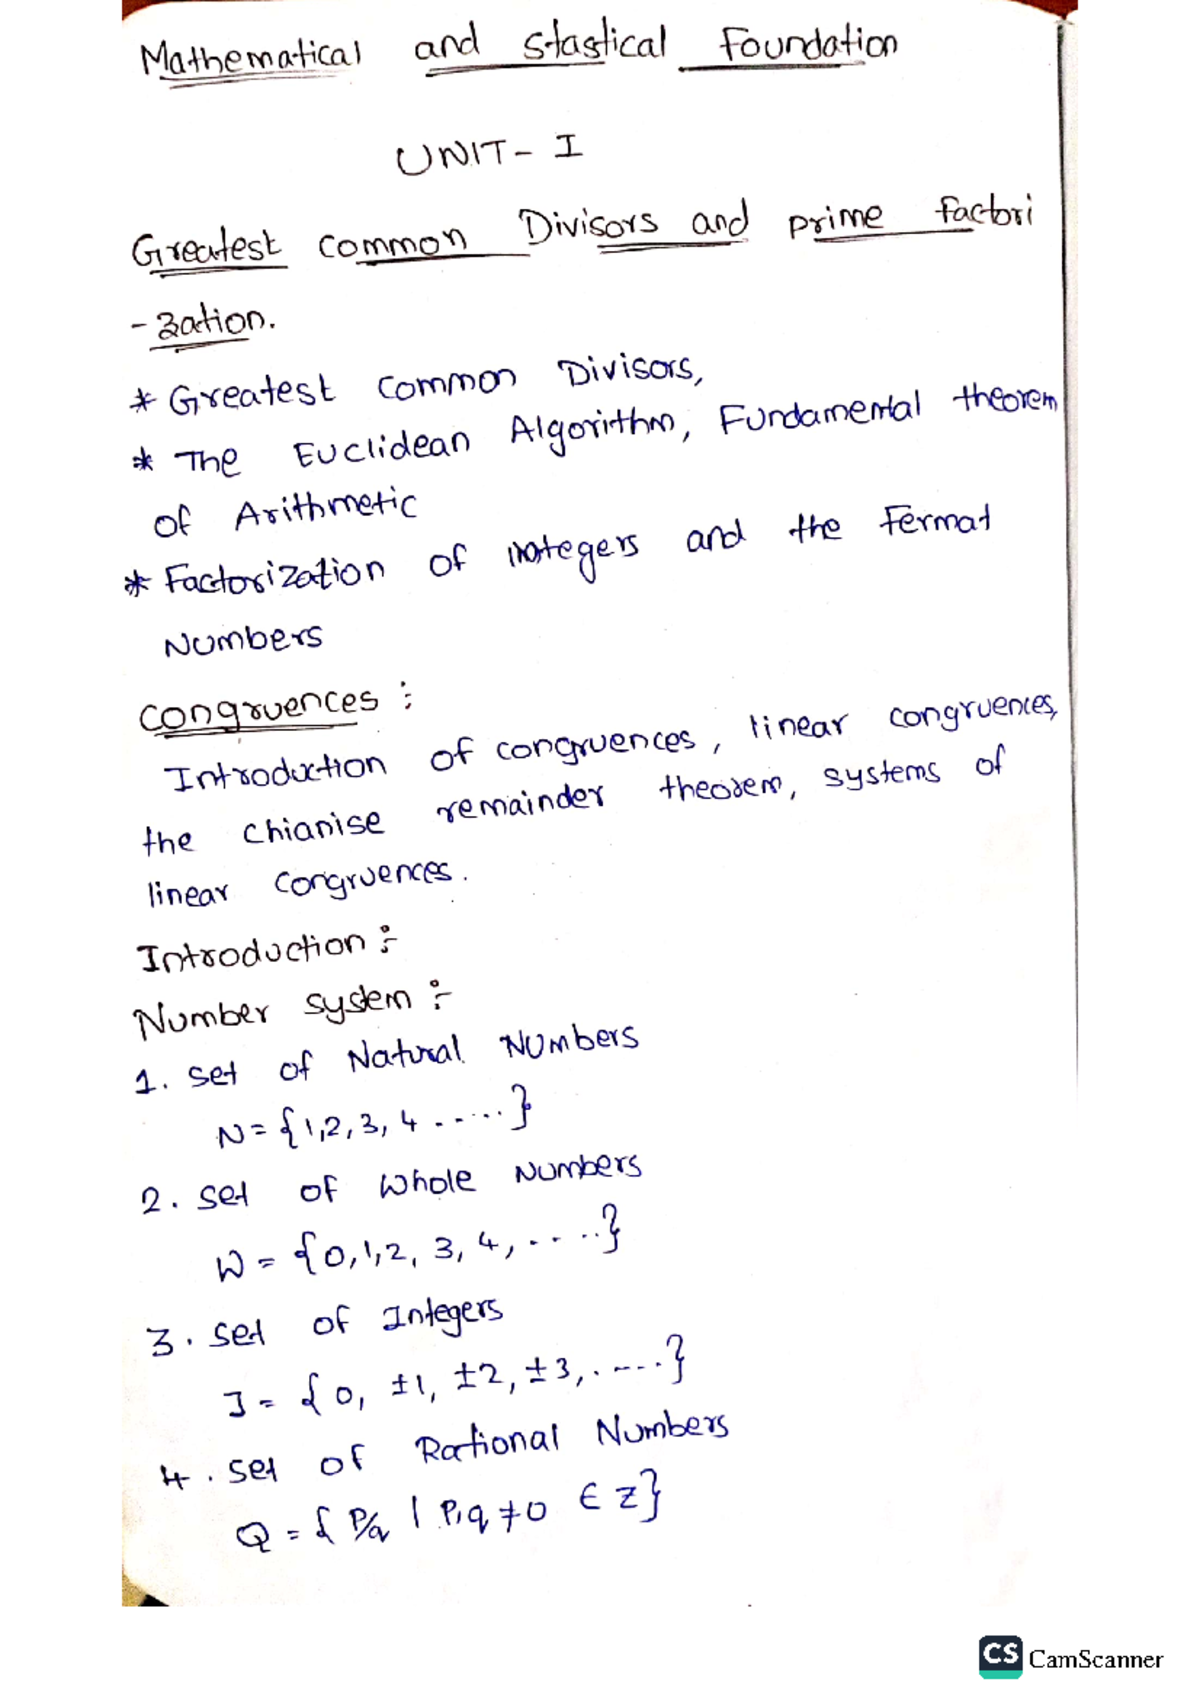 Mathematical and stastical Foundation
UNIT - I
Greatest common Divisors and prime factori
- zation.
* Greatest common Divisors,
* The Euclidean Algorithm, Fundamental theorem
of Arithmetic
* Factorization of integers and the Fermat
Numbers
congruences :
Introduction of congruences, linear congruences,
the chianise remainder theorem, systems of
linear congruences.
Introduction :-
Number system :-
1. set of Natural Numbers
N = {1,2,3,4 ......}
2. set of whole Numbers
W = {0,1,2, 3, 4, .....}
3. set of Integers
I = {0, ±1, ±2, ±3, .....}
4. set of Rational Numbers
Q = {P/q | P,q ≠ 0 ∈ Z}
CS CamScanner